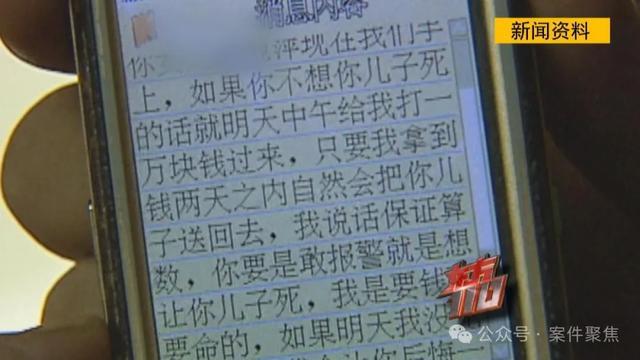 新闻资料
消息内容
评现在我们手
上，如果你不想你儿子死
的话就明天中午给我打一
万块钱过来，只要我拿到
钱两天之内自然会把你儿
子送回去，我说话保证算
数，你要是敢报警就是想
让你儿子死，我是要钱
要命的，如果明天我没
110
公众号·案件聚焦